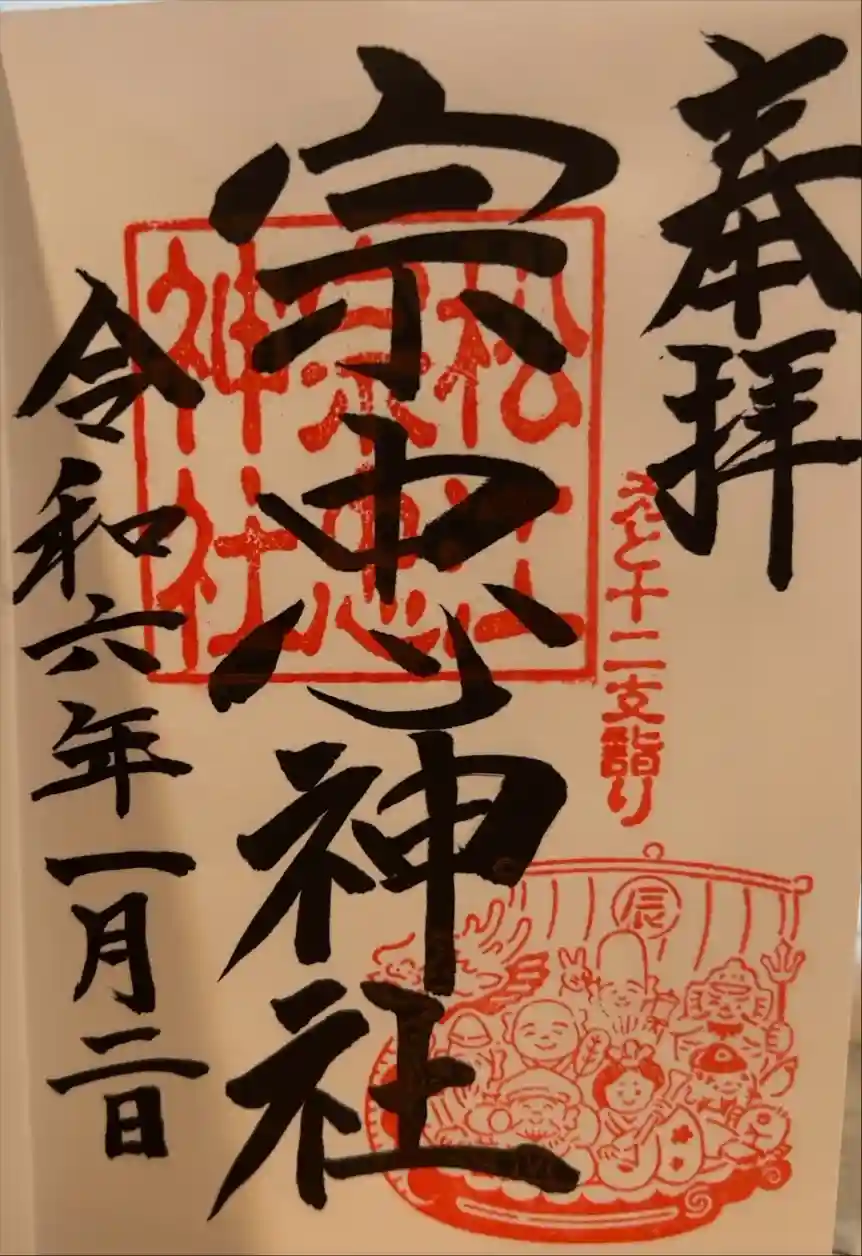 奉拝
えと十二支詣り
辰
宗忠神社
松江
宗忠
神社
令和六年一月二日